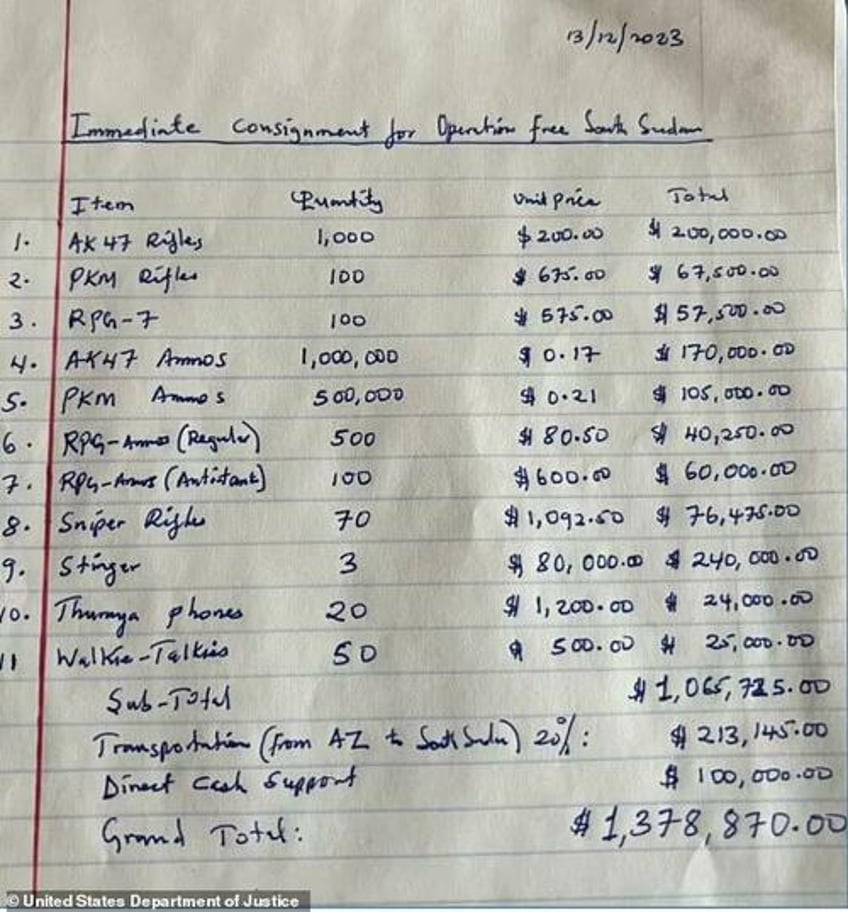 13/12/2023
Immediate Consignment for Operation free South Sudan
Item Quantity Unit price Total
1. AK47 Rifles 1,000 $200.00 $200,000.00
2. PKM Rifles 100 $675.00 $67,500.00
3. RPG-7 100 $575.00 $57,500.00
4. AK47 Ammos 1,000,000 $0.17 $170,000.00
5. PKM Ammos 500,000 $0.21 $105,000.00
6. RPG-Ammo (Regular) 500 $80.50 $40,250.00
7. RPG-Ammos (Antistant) 100 $600.00 $60,000.00
8. Sniper Rifles 70 $1,092.50 $76,475.00
9. Stinger 3 $80,000.00 $240,000.00
10. Thuraya phones 20 $1,200.00 $24,000.00
11 Walkie-Talkies 50 $500.00 $25,000.00
Sub-Total $1,065,725.00
Transportation (from AZ to South Sudan) 20%: $213,145.00
Direct cash support $100,000.00
Grand Total: $1,378,870.00
© United States Department of Justice